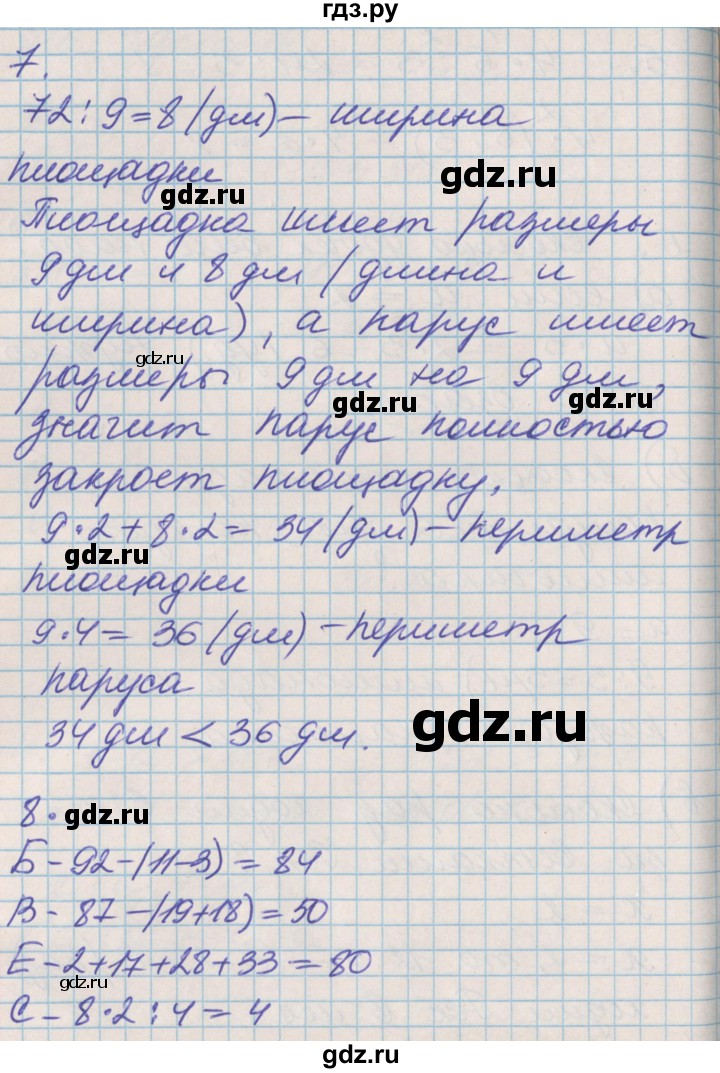 гдз.ру
7.
72 : 9 = 8 (дм) – ширина
площадки
gdz.ru
gdz.ru
Площадка имеет размеры
9 дм и 8 дм (длина и
ширина), а парус имеет
gdz.ru
размеры 9 дм на 9 дм,
gdz.ru
gdz.ru
значит парус полностью
закроет площадку.
9 · 2 + 8 · 2 = 34 (дм) – периметр
gdz.ru
площадки
9 · 4 = 36 (дм) – периметр
gdz.ru
паруса
gdz.ru
34 дм < 36 дм.
8.
gdz.ru
Б – 92 – (11 – 3) = 84
В – 87 – (19 + 18) = 50
Е – 2 + 17 + 28 + 33 = 80
gdz.ru
С – 8 · 2 : 4 = 4
gdz.ru
gdz.ru